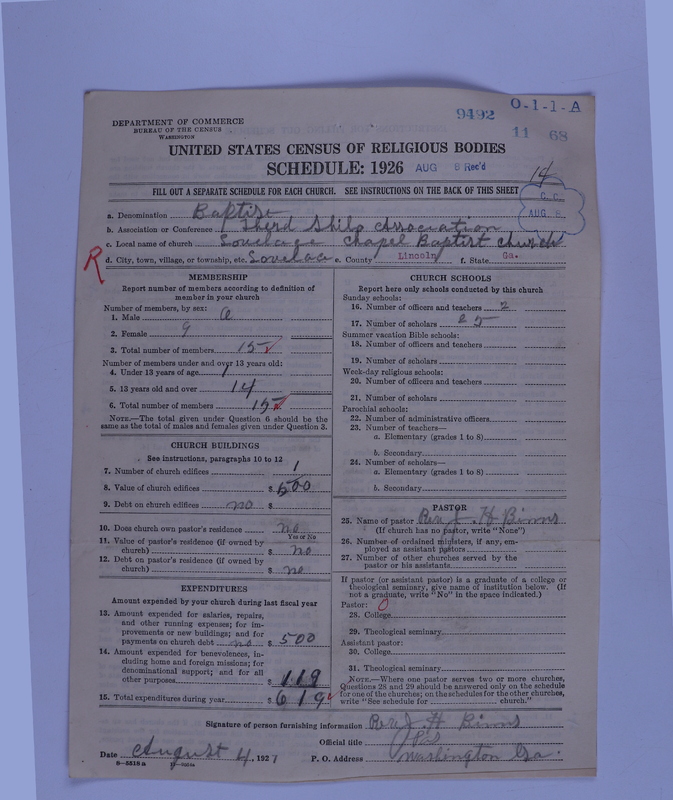 9492 O-1-1-A
11 68
DEPARTMENT OF COMMERCE
BUREAU OF THE CENSUS
WASHINGTON
UNITED STATES CENSUS OF RELIGIOUS BODIES
SCHEDULE: 1926 AUG 8 Rec'd
14
FILL OUT A SEPARATE SCHEDULE FOR EACH CHURCH. SEE INSTRUCTIONS ON THE BACK OF THIS SHEET
C. C.
AUG. 8
a. Denomination Baptist
b. Association or Conference Third Shilo Association
c. Local name of church Lovelace Chapel Baptist church
R
d. City, town, village, or township, etc. Lovelace e. County Lincoln f. State Ga.
MEMBERSHIP
Report number of members according to definition of
member in your church
Number of members, by sex:
1. Male 6
2. Female 9
3. Total number of members 15
Number of members under and over 13 years old:
4. Under 13 years of age 1
5. 13 years old and over 14
6. Total number of members 15
NOTE.—The total given under Question 6 should be
same as the total of males and females given under Question 3.
CHURCH BUILDINGS
See instructions, paragraphs 10 to 12
7. Number of church edifices 1
8. Value of church edifices $ 500
9. Debt on church edifices no $
10. Does church own pastor's residence no
Yes or No
11. Value of pastor's residence (if owned by
church) $ no
12. Debt on pastor's residence (if owned by
church) $ no
EXPENDITURES
Amount expended by your church during last fiscal year
13. Amount expended for salaries, repairs,
and other running expenses; for im-
provements or new buildings; and for
payments on church debt no $ 500
14. Amount expended for benevolences, in-
cluding home and foreign missions; for
denominational support; and for all
other purposes $ 119
15. Total expenditures during year $ 619
CHURCH SCHOOLS
Report here only schools conducted by this church
Sunday schools:
16. Number of officers and teachers 2
17. Number of scholars 25
Summer vacation Bible schools:
18. Number of officers and teachers
19. Number of scholars
Week-day religious schools:
20. Number of officers and teachers
21. Number of scholars
Parochial schools:
22. Number of administrative officers
23. Number of teachers—
a. Elementary (grades 1 to 8)
b. Secondary
24. Number of scholars—
a. Elementary (grades 1 to 8)
b. Secondary
PASTOR
25. Name of pastor Rev J. H Binns
(If church has no pastor, write "None")
26. Number of ordained ministers, if any, em-
ployed as assistant pastors
27. Number of other churches served by the
pastor or his assistants
If pastor (or assistant pastor) is a graduate of a college or
theological seminary, give name of institution below. (If
not a graduate, write "No" in the space indicated.)
Pastor: O
28. College
29. Theological seminary
Assistant pastor:
30. College
31. Theological seminary
NOTE.—Where one pastor serves two or more churches,
Questions 28 and 29 should be answered only on the schedule
for one of the churches; on the schedules for the other churches,
write "See schedule for church."
Signature of person furnishing information Rev J. H Binns
Official title Pas
Date August 4, 1927 P. O. Address Washington Ga.
8-5518 a